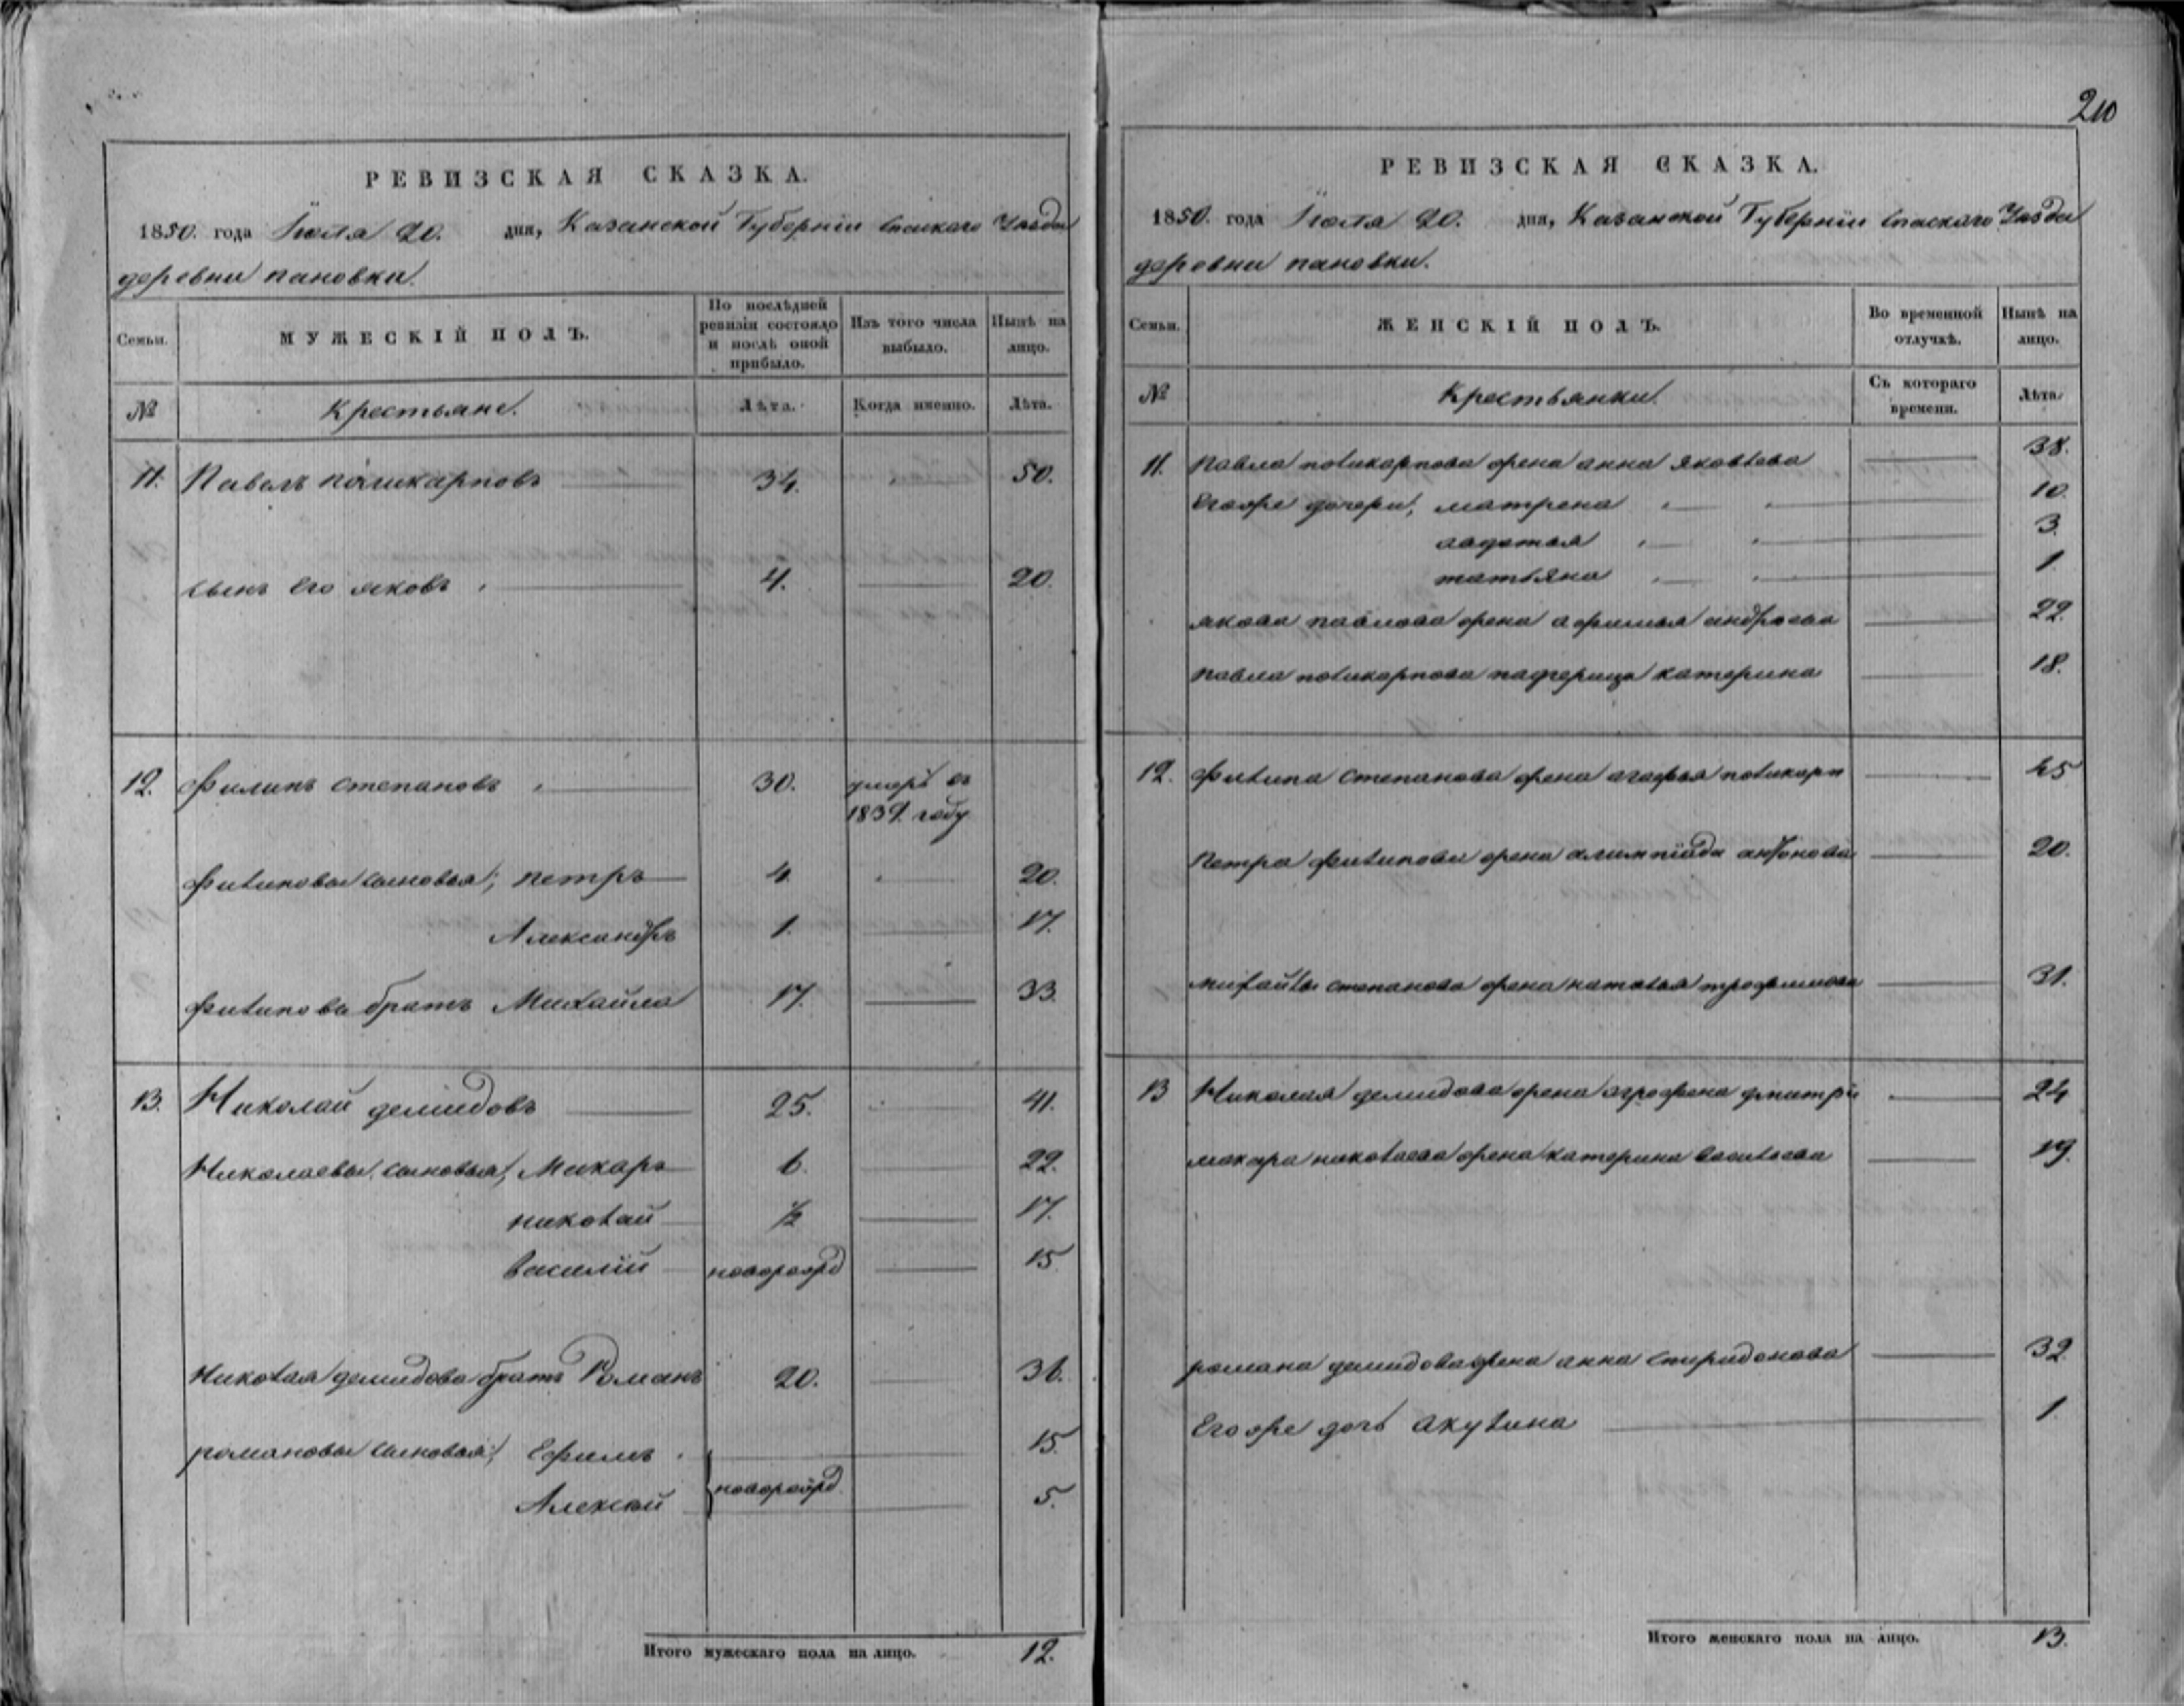 РЕВИЗСКАЯ СКАЗКА.
1850. года Июля 20. дня, Казанской Губерніи Спаскаго Уѣзда
деревни пановки.
Семьи. МУЖЕСКІЙ ПОЛЪ. По послѣдней ревизіи состояло и послѣ оной прибыло. Изъ того числа выбыло. Нынѣ на лицо.
№ Крестьяне. Лѣта. Когда именно. Лѣта.
11. Павелъ поликарповъ 34. 50.
сынъ его яковъ 4. 20.
12. Филипъ степановъ 30. умеръ въ 1839. году
филиповы сыновья; петръ 4 20.
Александръ 1. 17.
филипова братъ Михайла 17. 33.
13. Николай демидовъ 25. 41.
Николаевы сыновья; Макаръ 6. 22.
николай ½ 17.
василій новорожд 15.
николая демидова братъ Романъ 20. 36.
романовы сыновья; Ефимъ 15.
новорожд
Алексѣй 5.
Итого мужескаго пола на лицо. 12.
210
РЕВИЗСКАЯ СКАЗКА.
1850. года Июля 20. дня, Казанской Губерніи Спаскаго Уѣзда
деревни пановки.
Семьи. ЖЕНСКІЙ ПОЛЪ. Во временной отлучкѣ. Нынѣ на лицо.
№ Крестьянки. Съ котораго времени. Лѣта
11. павла поликарпова жена анна яковлева 38.
Егоже дочери; матрена 10.
авдотья 3.
татьяна 1.
якова павлова жена афимья андреева 22.
павла поликарпова падчерица катерина 18.
12. филипа степанова жена агафья поликарп 45
петра филипова жена алимпіада антонова 20.
михайлы степанова жена наталья трофимова 31.
13 Николая демидова жена агрофена дмитрі 24
макара николаева жена катерина васильева 19.
романа демидова жена анна спиридонова 32.
Егоже дочь акулина 1.
Итого женскаго пола на лицо. 13.